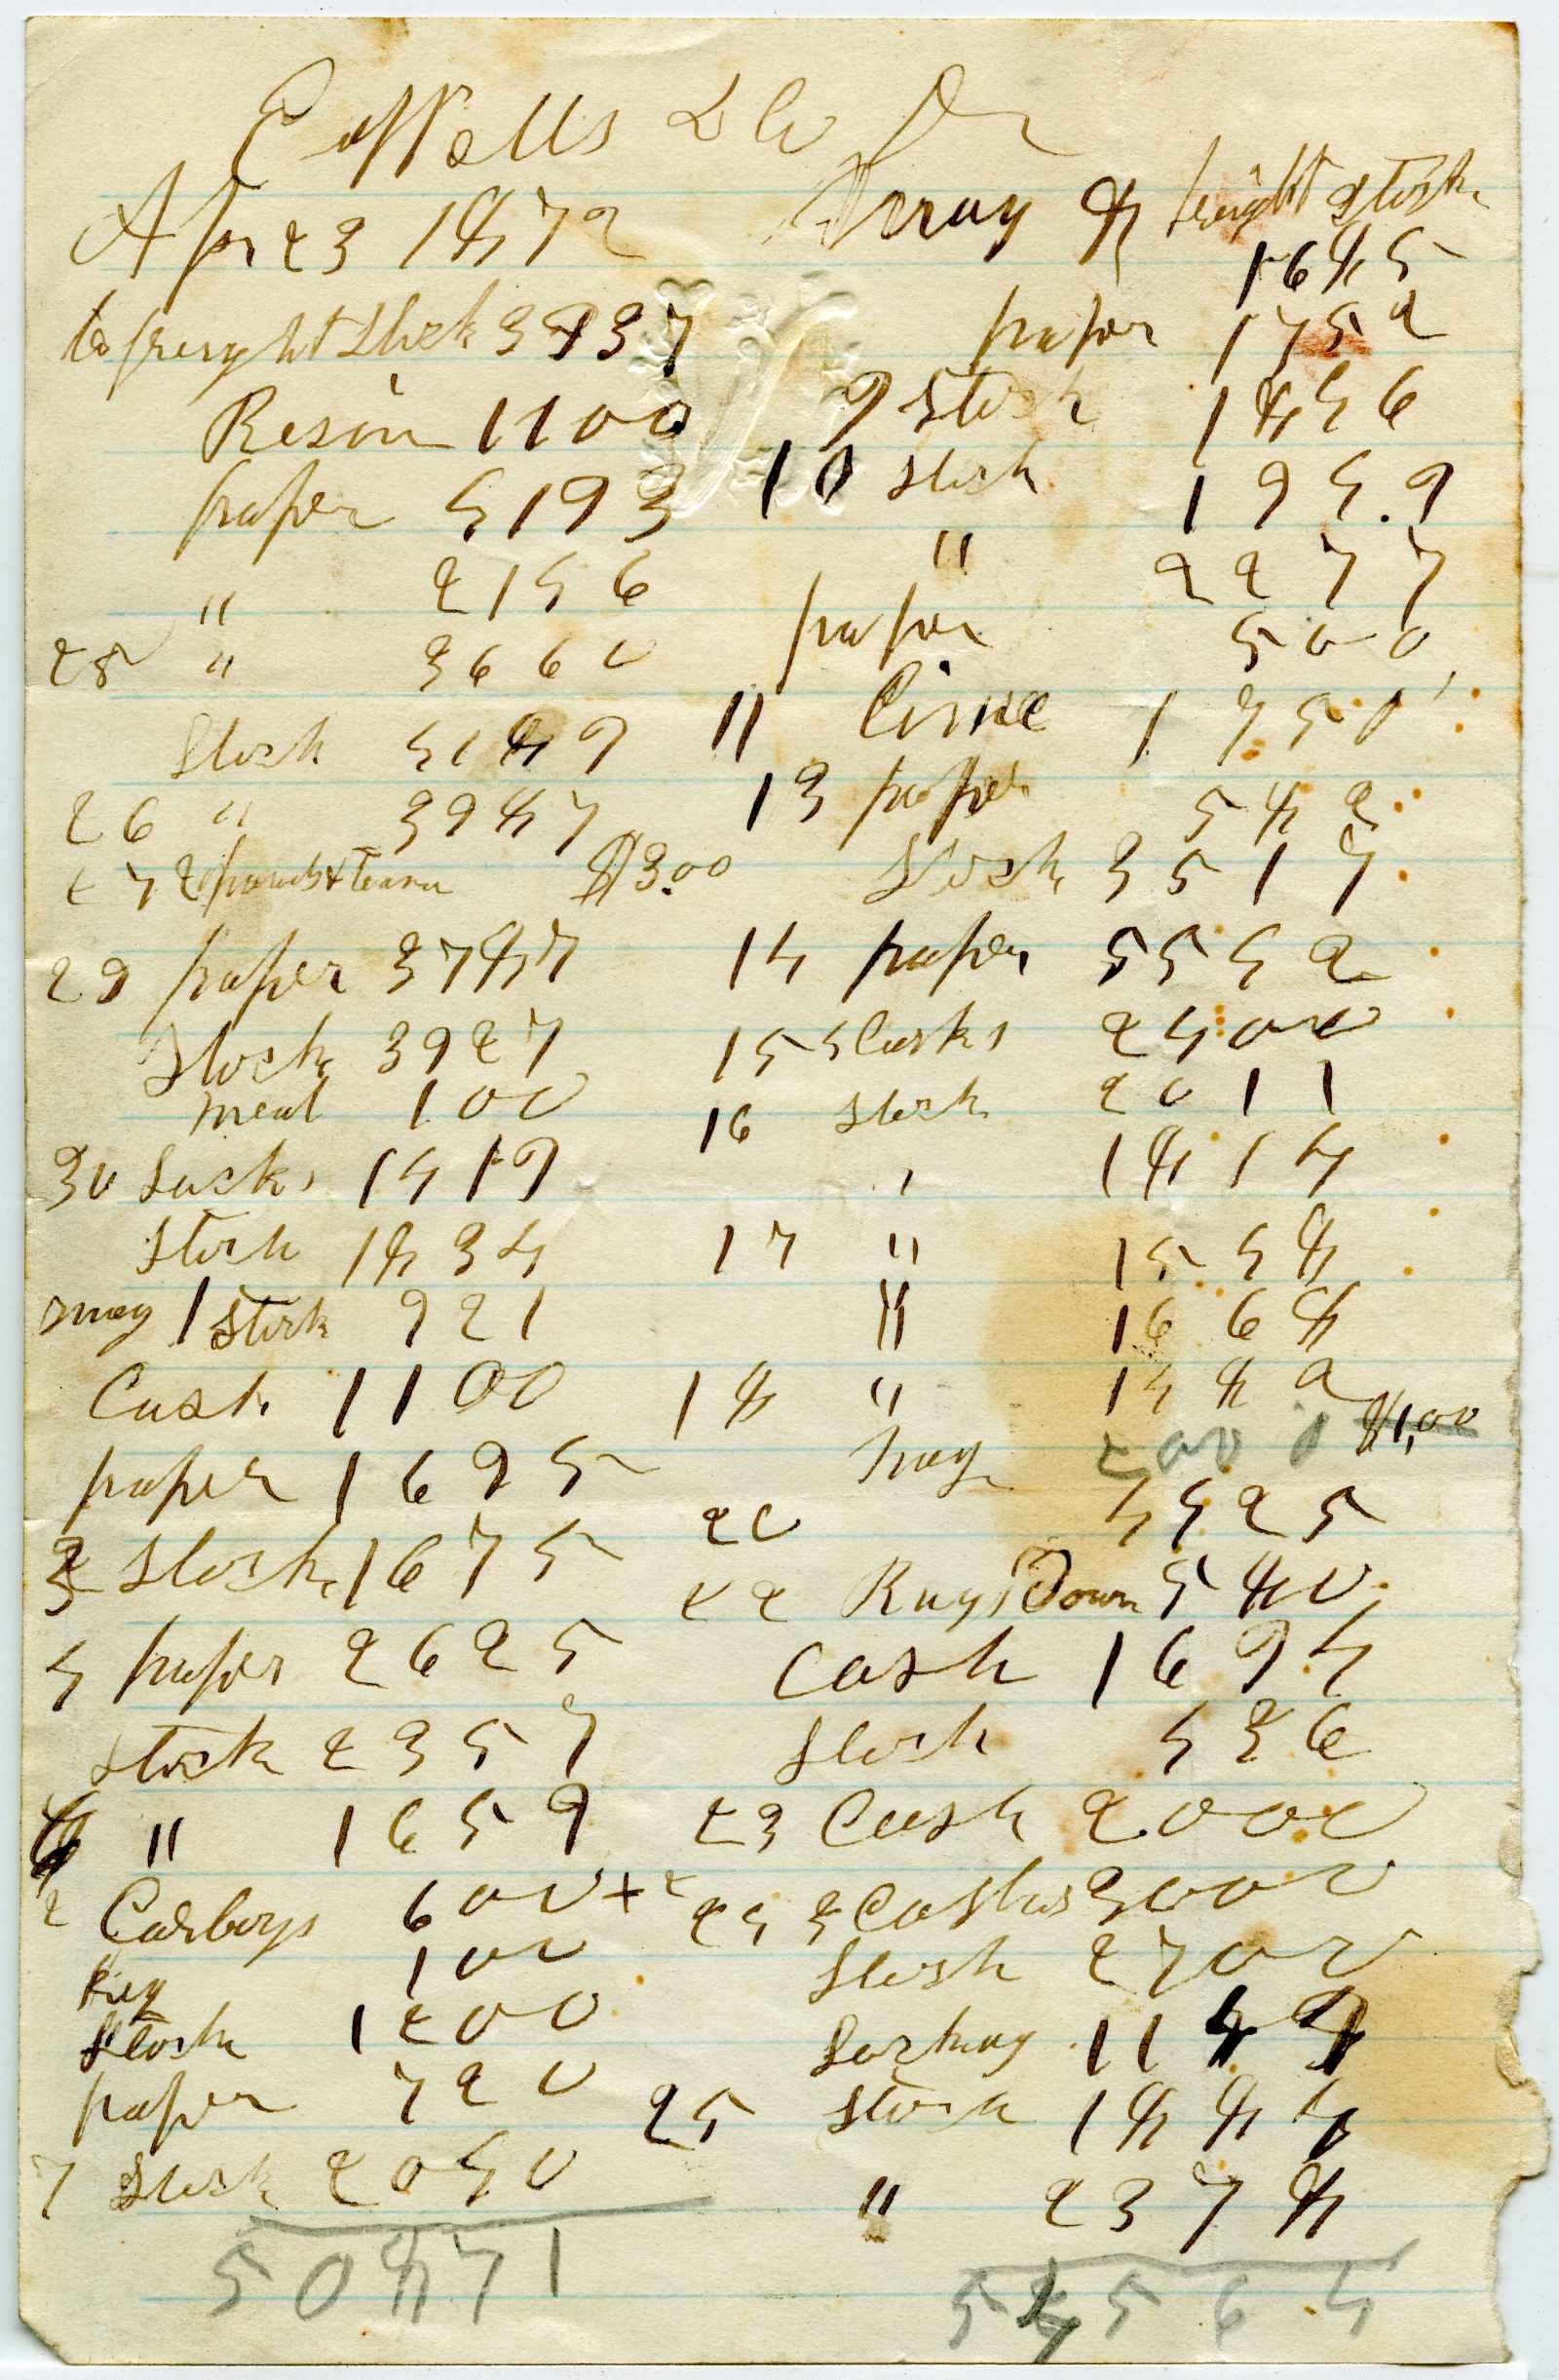 & Co Dr
Apr 23 1872
to freight Stock 3837
Resin 1100
paper 4193
" 2146
25 " 3660
Stock 4189
26 " 3987
27 2 hands & team $3.00
29 paper 3787
Stock 3927
meal 100
30 Sacks 1419
Stock 1834
may 1 Stock 921
Cash 1100
paper 1695
3 Stock 1675
4 paper 2625
Stock 2357
6 " 1659
2 Carboys 600 +
Keg 100
Stock 1200
paper 720
7 Stock 2040
50871
may 8 freight Stock
1685
paper 1752
9 Stock 1846
10 Stock 1949
" 2277
paper 500
11 Lime 1750
13 paper 582
Stock 3517
14 paper 5542
15 4 Casks 2400
16 Stock 2011
" 1814
17 " 1548
" 1668
18 " 1482
hay 2000 $1,00
20 4425
22 Rags Down 580
Cash 1694
Stock 436
23 Cash 2000
24 3 Casks 3000
Stock 2700
1144
25 Stock 1884
" 2378
54564